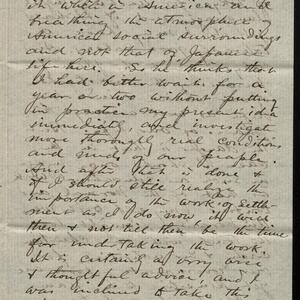 it while in America and
breathing the atmosphere of
American social surroundings
and not that of Japanese
life there. So he thinks that
I had better wait for a
year or two without putting
in practice my present idea
immediately, and investigate
more thoroughly real conditions
and needs of our people.
And after that is done &
if I should still realize the
importance of the work of settle-
ment as I do now, it will
then & not till then be the time
for undertaking the work.
It is certainly very wise
& thoughtful advice, and I
was inclined to take this